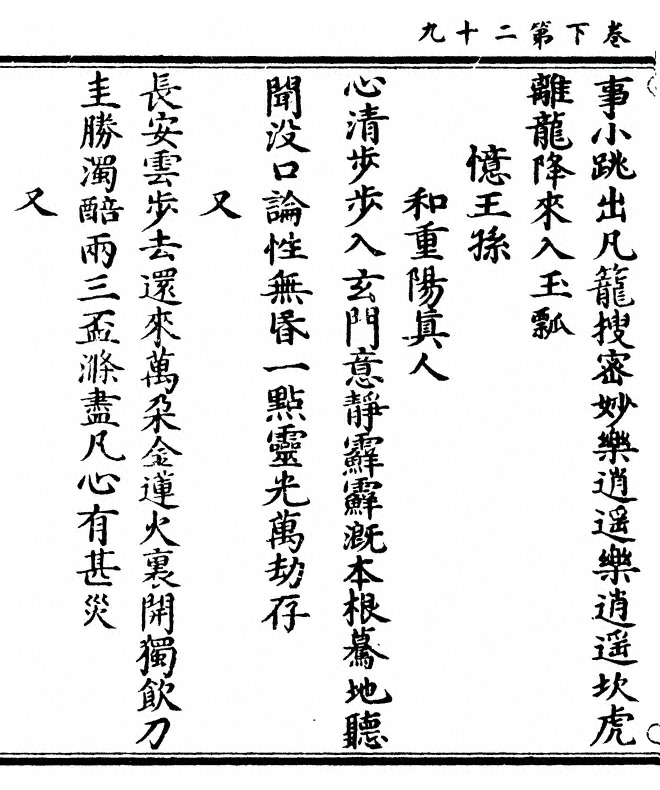 卷下第二十九
事小跳出凡籠搜密妙樂逍遥樂逍遥坎虎
離龍降來入玉瓢
憶王孫
和重陽眞人
心清步步入玄門意靜溉本根驀地聽
聞没口論性無昬一點靈光萬劫存
又
長安雲步去還來萬朵金蓮火裏開獨飲刀
圭勝濁醅兩三盃滌盡凡心有甚災
又